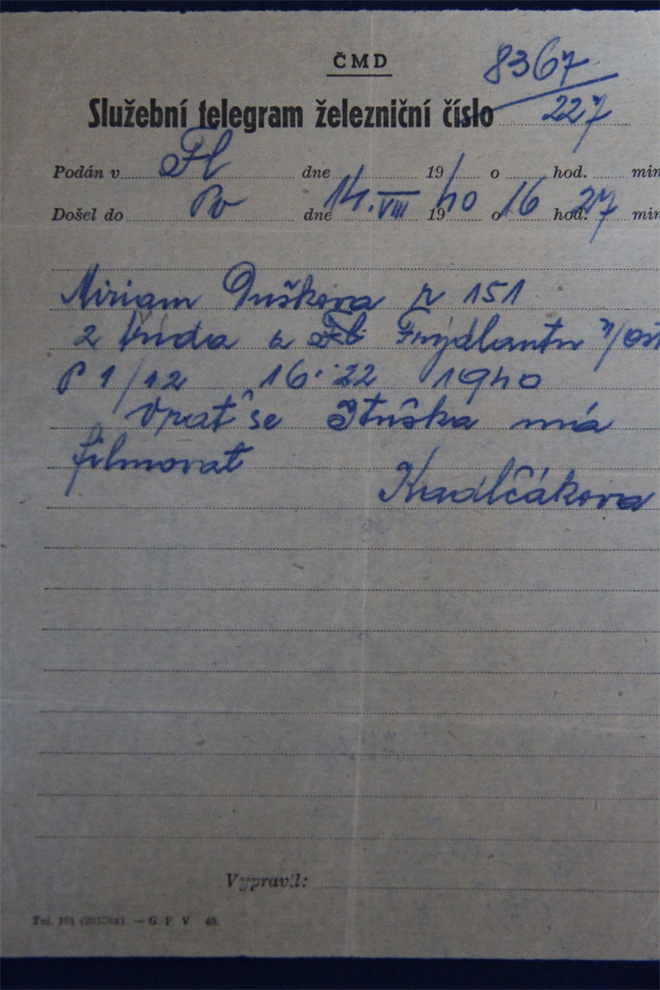 ČMD
8367
Služební telegram železniční číslo 227
Podán v Fl dne 19 o hod. min
Došel do Po dne 14. VIII 1940 o 16 hod. 27 min
Miriam Dušková r 151
2 třída Frýdlantu n/Ost
P 1/12 16·22 1940
Vrať se Ituška má
filmovat
Kadlčáková
Vypravil:
Tel. 101 — G. P. V 40.